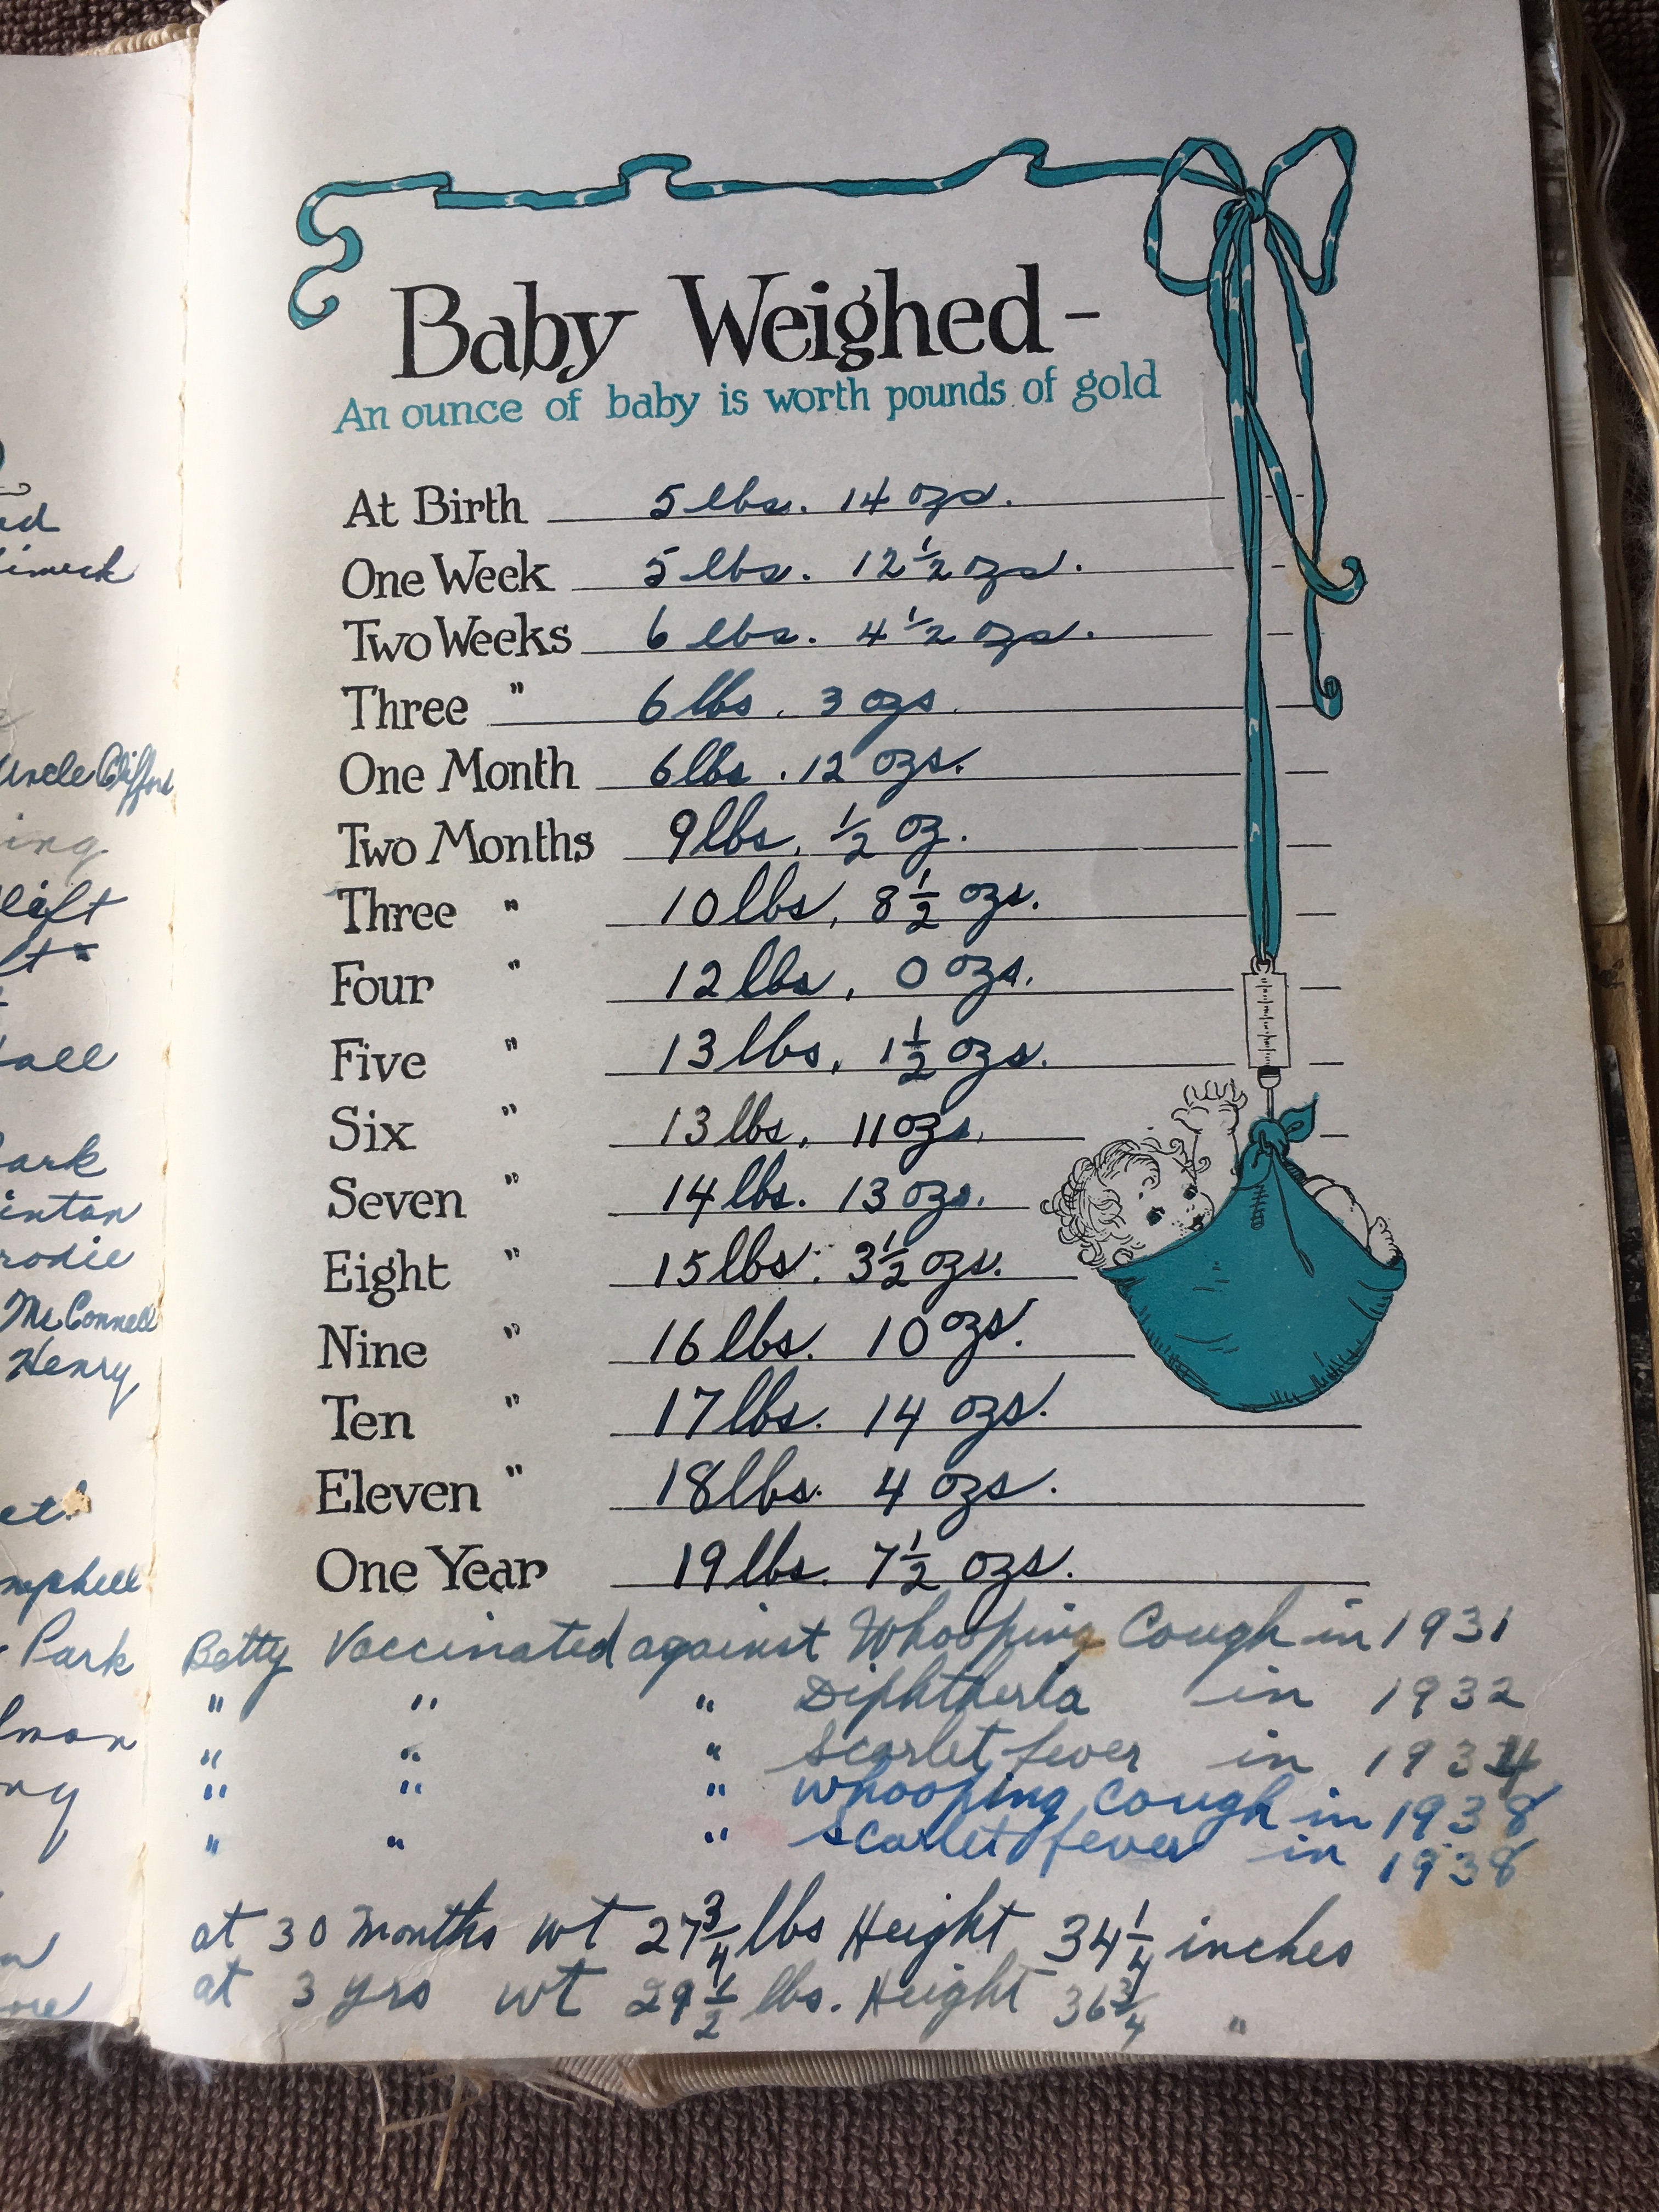 Uncle Clifford
Mc Connell
Henry
Park
Baby Weighed -
An ounce of baby is worth pounds of gold
At Birth 5 lbs. 14 ozs.
One Week 5 lbs. 12 1/2 ozs.
Two Weeks 6 lbs. 4 1/2 ozs.
Three " 6 lbs. 3 ozs.
One Month 6 lbs. 12 ozs.
Two Months 9 lbs. 1/2 oz.
Three " 10 lbs. 8 1/2 ozs.
Four " 12 lbs. 0 ozs.
Five " 13 lbs. 1 1/2 ozs.
Six " 13 lbs. 11 ozs.
Seven " 14 lbs. 13 ozs.
Eight " 15 lbs. 3 1/2 ozs.
Nine " 16 lbs. 10 ozs.
Ten " 17 lbs. 14 ozs.
Eleven " 18 lbs. 4 ozs.
One Year 19 lbs. 7 1/2 ozs.
Betty Vaccinated against Whooping Cough in 1931
" " " Diphtheria in 1932
" " " Scarlet fever in 1934
" " " whooping cough in 1938
" " " scarlet fever in 1938
at 30 months wt 27 3/4 lbs Height 34 1/4 inches
at 3 yrs wt 29 1/2 lbs. Height 36 3/4 "